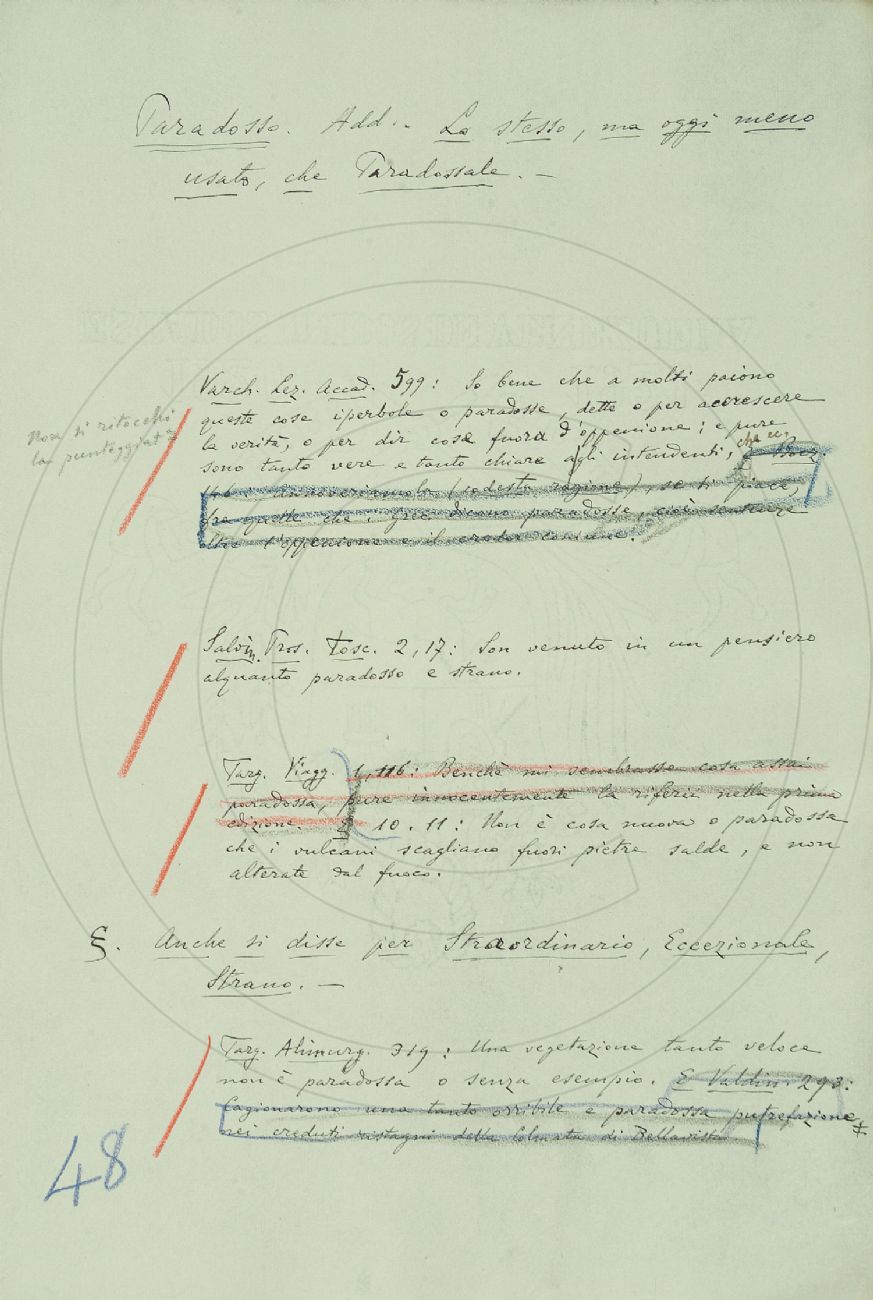 Paradosso. Add. - Lo stesso, ma oggi meno
usato, che Paradossale. -
Varch. Lez. Accad. 599: So bene che a molti paiono
queste cose iperbole o paradosse, dette o per accrescere
Non si ritocchi
la punteggiat.ª
la verità, o per dir cose fuora d'oppenione; e pure
sono tanto vere e tanto chiare agli intendenti, che ec. E Boez.
116: Annoveriamola (codesta ragione), se ti piace,
fra quelle che i Greci dicono paradosse, cioè sentenze
oltre l'oppenione e il creder comune.
Salvin. Pros. tosc. 2, 17: Son venuto in un pensiero
alquanto paradosso e strano.
Targ. Viagg. 1, 116: Benchè mi sembrasse cosa assai
paradossa, pure innocentemente la riferii nella prima
edizione. E 10. 11: Non è cosa nuova o paradossa
che i vulcani scagliano fuori pietre salde, e non
alterate dal fuoco.
§. Anche si disse per Straordinario, Eccezionale,
Strano. -
Targ. Alimurg. 319: Una vegetazione tanto veloce
non è paradossa o senza esempio. E Valdin. 293:
Cagionarono una tanto orribile e paradossa putrefazione
nei creduti ristagni della Colmata di Bellavista
48